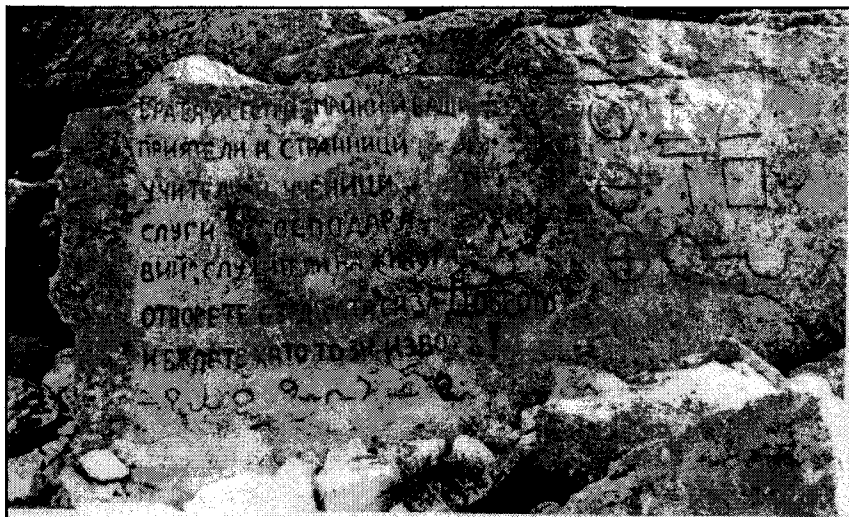 БРАТЯ И СЕСТРИ, МАЙКИ И БАЩИ
ПРИЯТЕЛИ И СТРАННИЦИ
УЧИТЕЛИ И УЧЕНИЦИ
СЛУГИ И ГОСПОДАРИ
ВИЙ, СЛУЖИТЕЛИ НА ЖИВОТА
ОТВОРЕТЕ ДОБРОТО
И БѪДЕТЕ КАТО ТОЗИ ИЗВОР!